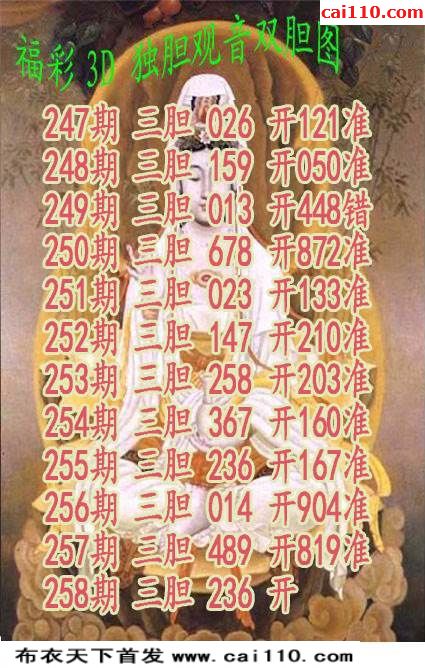 cai110.com
福彩3D 独胆观音双胆图
247期 三胆 026 开121准
248期 三胆 159 开050准
249期 三胆 013 开448错
250期 三胆 678 开872准
251期 三胆 023 开133准
252期 三胆 147 开210准
253期 三胆 258 开203准
254期 三胆 367 开160准
255期 三胆 236 开167准
256期 三胆 014 开904准
257期 三胆 489 开819准
258期 三胆 236 开
布衣天下首发 www.cai110.com